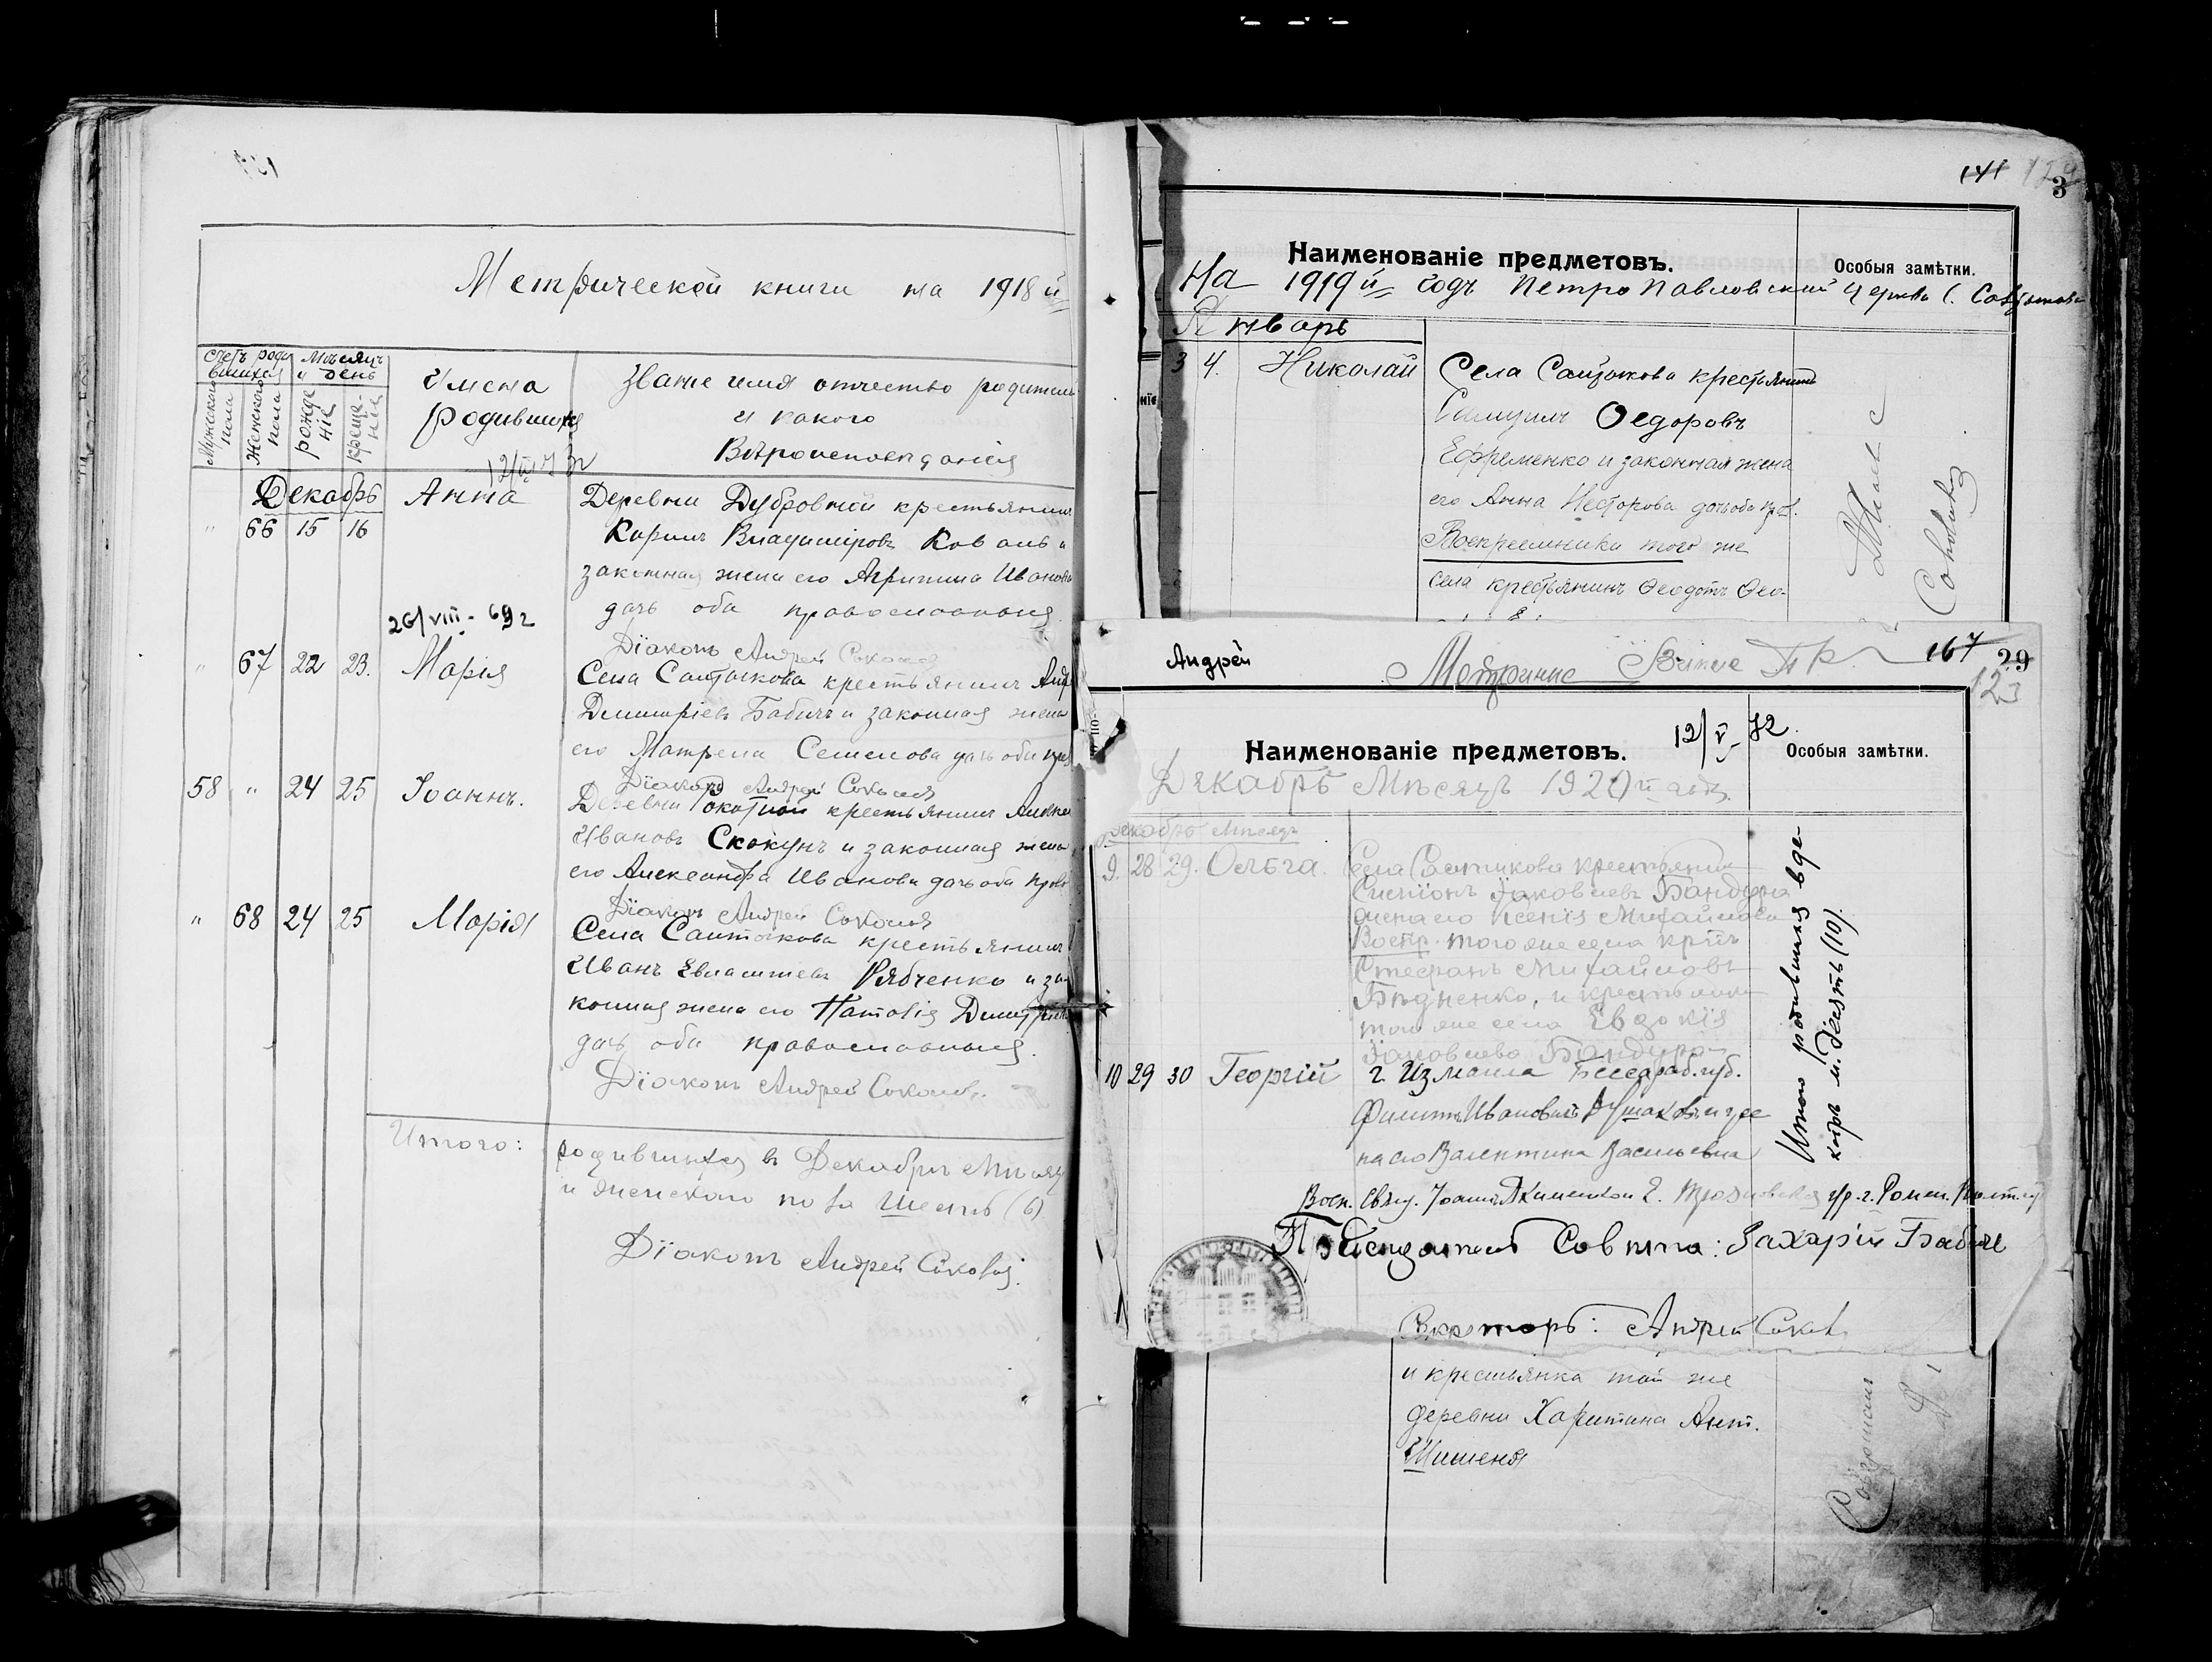 Метрической книги на 1918 й
счетъ роди
вшихся
Мѣсяцъ
и день
Мужеского
пола
Женского
пола
рожде
ніе
креще-
ніе
Имена
родившихся
Званіе имя отчество родителей
и какого
Вѣроисповѣданія
Декабрь
Анна
Деревни Дубровной крестьянинъ
" 66 15 16
Кирилъ Владиміровъ Коваль и
законная жена его Агрипина Иванова
дочь оба православныя
26/VIII - 69 г
Діаконъ Андрей Соколов
" 67 22 23. Марія
Села Салтыкова крестьянинъ Андр
Димитріевъ Бабичъ и законная жена
его Матрена Семенова дочь оба прав
Діаконъ Андрей Соколов
58 " 24 25 Іоаннъ.
Деревни крестьянинъ
Ивановъ Скокунъ и законная жена
его Александра Иванова дочь оба прав
Діаконъ Андрей Соколов
" 68 24 25 Марія
Села Салтыкова крестьянинъ
Иванъ Рябченко и за-
конная жена его Наталія Димитріева
дочь оба православныя.
Діаконъ Андрей Соколов.
Итого:
родившихся въ Декабрѣ Мѣсяцѣ
и женского пола шесть (6)
Діаконъ Андрей Соколов.
141
3
Наименованіе предметовъ.
Особыя замѣтки.
На 1919 й годъ Петро Павловский Церкви С. Салтыкова
Январь
3 4. Николай
Села Салтыкова крестьянинъ
Самуилъ Ѳедоровъ
Ефременко и законная жена
его Анна Несторова дочь оба пр.
Воспріемники того же
села крестьянинъ Ѳеодотъ Ѳео-
Андрей
167 29
123
12/V - 72.
Наименованіе предметовъ.
Особыя замѣтки.
Декабрь Мѣсяцъ
Декабрь Мѣсяцъ
9. 28 29. Ольга.
Села Салтыкова крестьянин
Яковлевъ Бандура
жена его Ксенія Михайлова
Воспр. того же села кр
Стефанъ Михайловъ
Бѣдненко, и крестьянка
того же села Евдокія
Яковлева Бандура
10 29 30 Георгій
г. Измаила Бессараб. губ.
Филиппъ Ивановичъ и же
на его Валентина Васильевна
Итого родившихся в де-
кабрѣ м. Десять (10).
Предсѣдатель Совѣта: Захарій Бабиче
Секретарь: Андрей Сокол
и крестьянка той же
деревни Харитина Ант.
Шишеня